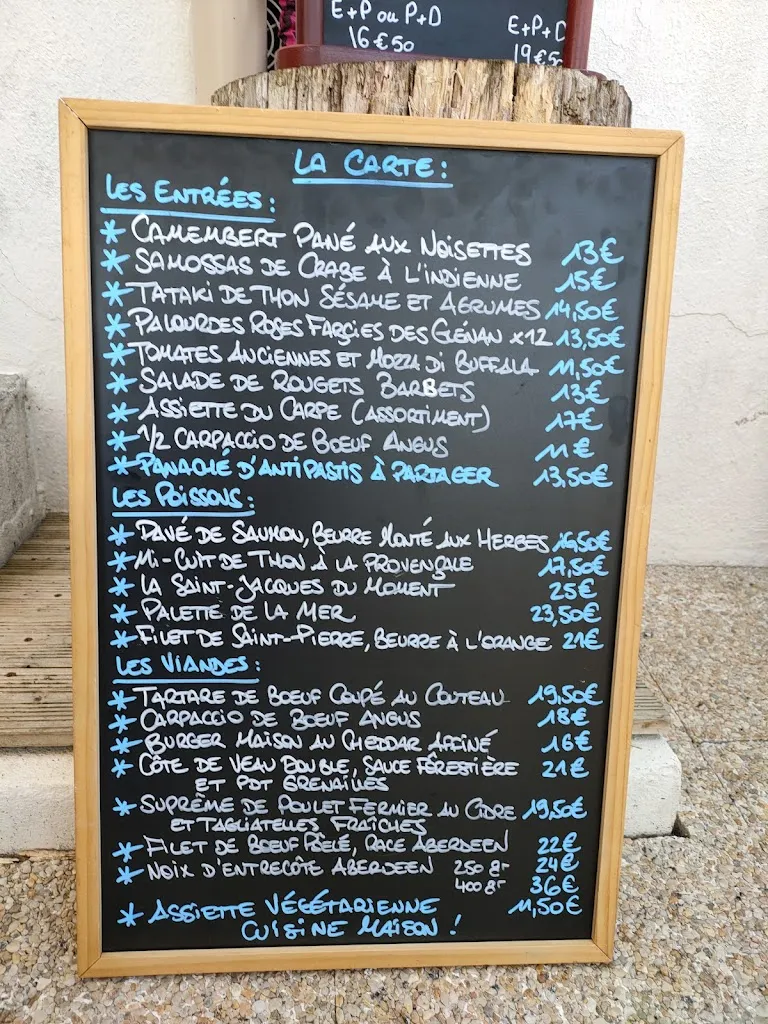 E+P ou P+D
E+P+D
16€50
19€50
LA CARTE:
LES ENTRÉES:
* CAMEMBERT PANÉ AUX NOISETTES 13€
* SAMOSSAS DE CRABE À L'INDIENNE 15€
* TATAKI DE THON SÉSAME ET AGRUMES 14,50€
* PALOURDES ROSES FARÇIES DES GLÉNAN x12 13,50€
* TOMATES ANCIENNES ET MOZZA DI BUFFALA 11,50€
* SALADE DE ROUGETS BARBETS 13€
* ASSIETTE DU CARPE (ASSORTIMENT) 17€
* 1/2 CARPACCIO DE BOEUF ANGUS 11€
* PANACHÉ D'ANTIPASTIS À PARTAGER 13,50€
LES POISSONS:
* PAVÉ DE SAUMON, BEURRE MONTÉ AUX HERBES 16,50€
* MI-CUIT DE THON À LA PROVENÇALE 17,50€
* LA SAINT-JACQUES DU MOMENT 25€
* PALETTE DE LA MER 23,50€
* FILET DE SAINT-PIERRE, BEURRE À L'ORANGE 21€
LES VIANDES:
* TARTARE DE BOEUF COUPÉ AU COUTEAU 19,50€
* CARPACCIO DE BOEUF ANGUS 18€
* BURGER MAISON AU CHEDDAR AFFINÉ 16€
* CÔTE DE VEAU DOUBLE, SAUCE FORESTIÈRE 21€
ET PDT GRENAILLES
* SUPRÊME DE POULET FERMIER AU CIDRE 19,50€
ET TAGLIATELLES FRAÎCHES
* FILET DE BOEUF POÊLÉ, RACE ABERDEEN 22€
* NOIX D'ENTRECÔTE ABERDEEN 250 gr 24€
400 gr 36€
* ASSIETTE VÉGÉTARIENNE 11,50€
CUISINE MAISON !